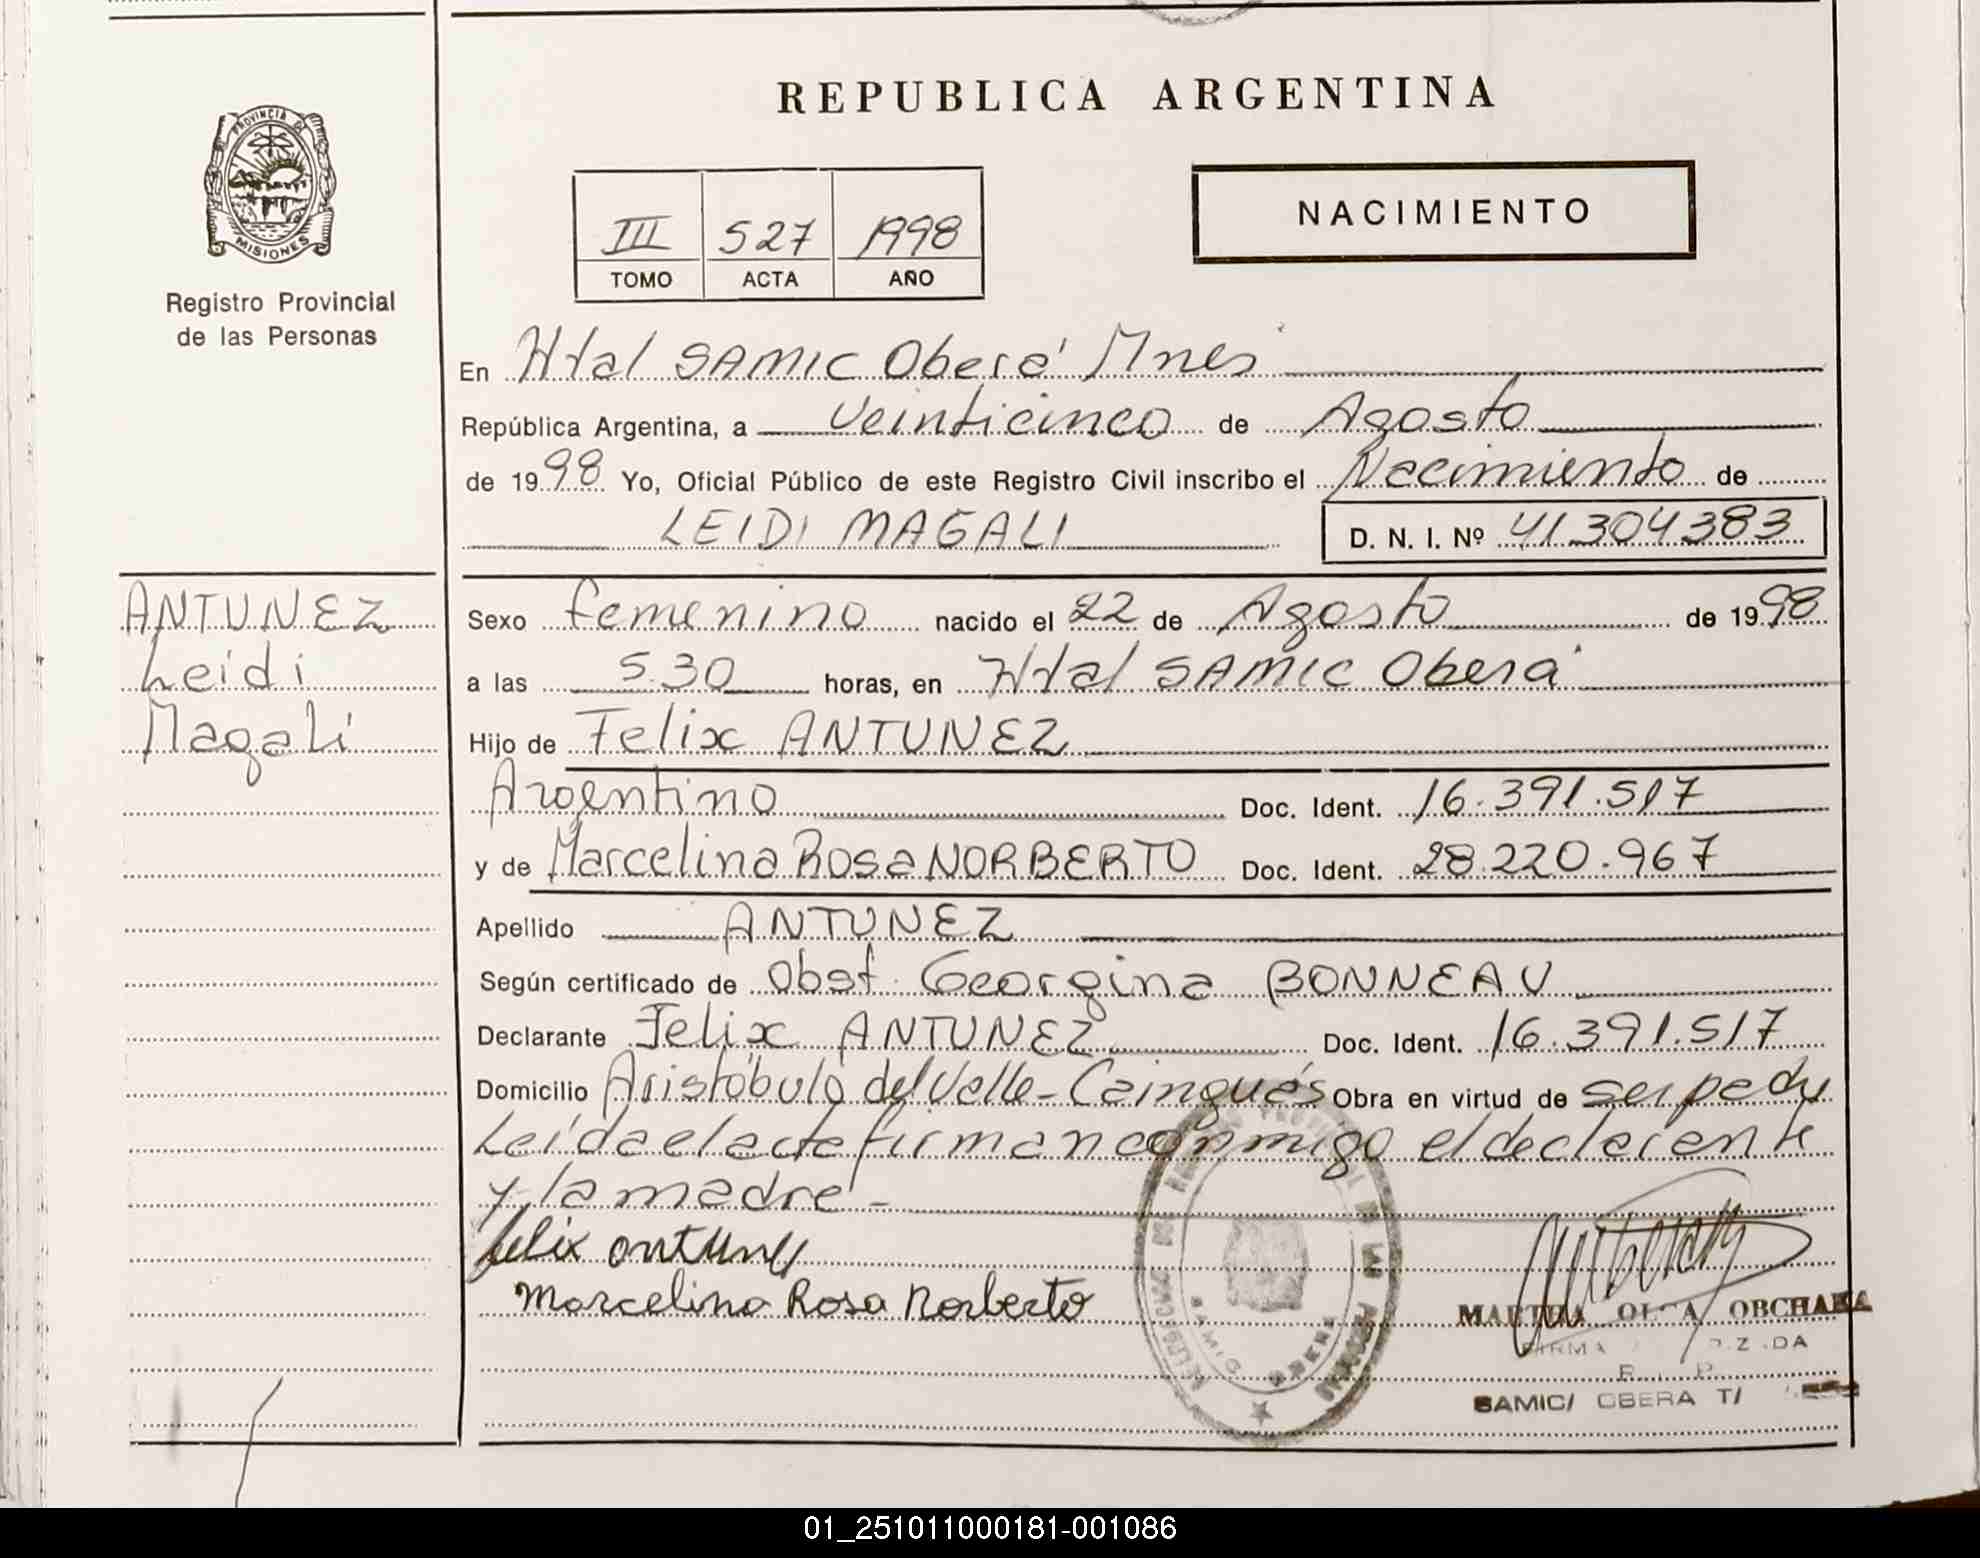 REPUBLICA ARGENTINA
PROVINCIA DE
MISIONES
Registro Provincial
de las Personas
III 527 1998
TOMO ACTA AÑO
NACIMIENTO
En Htal SAMIC Oberá Mnes
República Argentina, a veinticinco de Agosto
de 1998 Yo, Oficial Público de este Registro Civil inscribo el Nacimiento de
LEIDI MAGALI D. N. I. Nº 41304383
ANTUNEZ
Leidi
Magali
Sexo femenino nacido el 22 de Agosto de 1998
a las 5.30 horas, en Htal SAMIC Oberá
Hijo de Felix ANTUNEZ
Argentino Doc. Ident. 16.391.517
y de Marcelina Rosa NORBERTO Doc. Ident. 28.220.967
Apellido ANTUNEZ
Según certificado de Obst. Georgina BONNEAU
Declarante Felix ANTUNEZ Doc. Ident. 16.391.517
Domicilio Aristóbulo del Valle - Cainguás Obra en virtud de ser padre
Leída el acta firman conmigo el declarante
y la madre -
felix antunez
Marcelina Rosa Norberto
MARTHA OLGA OBCHAKA
FIRMA
SAMIC/ OBERA T/
SAMIC OBERA
01_251011000181-001086